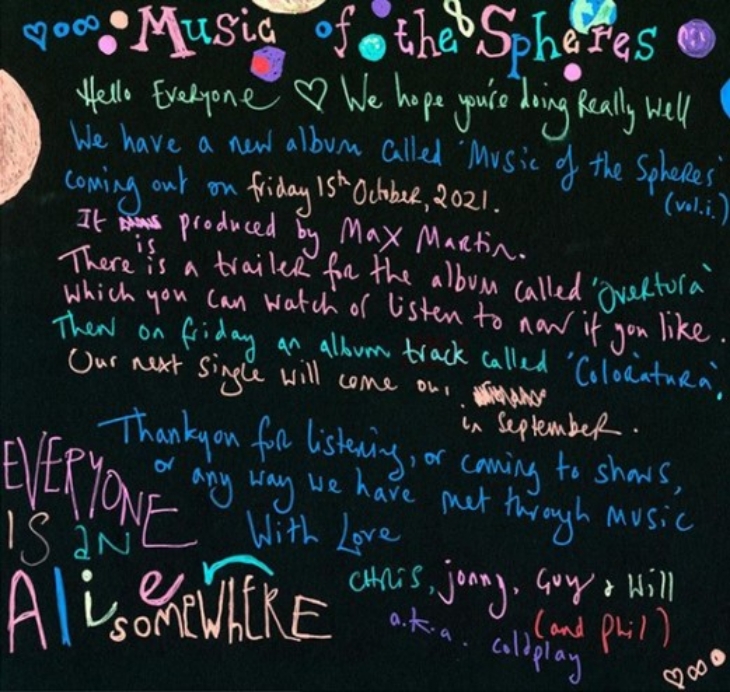 Music of the Spheres
Hello Everyone ♡ We hope you're doing Really Well
We have a new album called 'Music of the Spheres'
(vol.i.)
coming out on friday 15th October, 2021.
It is produced by Max Martin.
There is a trailer for the album called 'Overtura'
which you can watch or listen to now if you like.
Then on friday an album track called 'Coloratura'.
Our next single will come out
in September.
Thankyou for listening, or coming to shows,
or any way we have met through music
With Love
EVERYONE
IS an
Alien
somewhere
Chris, jonny, Guy & Will
(and phil)
a.k.a. coldplay